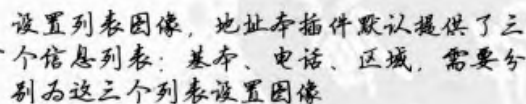 设置列表图像，地址本插件默认提供了三
个信息列表：基本、电话、区域，需要分
别为这三个列表设置图像